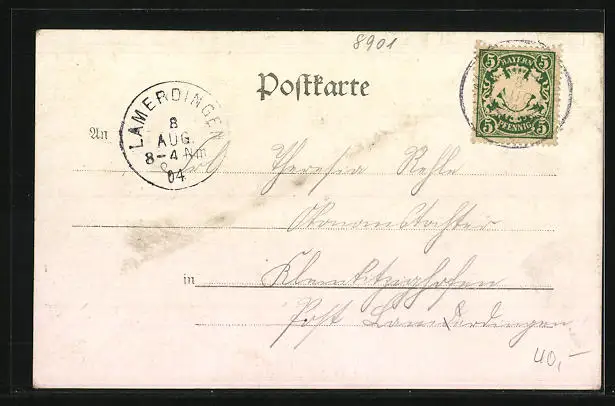 8901
Postkarte
5 BAYERN 5
5 PFENNIG 5
LAMERDINGEN
8
AUG.
8-4 Nm
04
An Frl. Theresia Rehle
Ökonomstochter
in Kleinkitzighofen
Post Lamerdingen
40,-